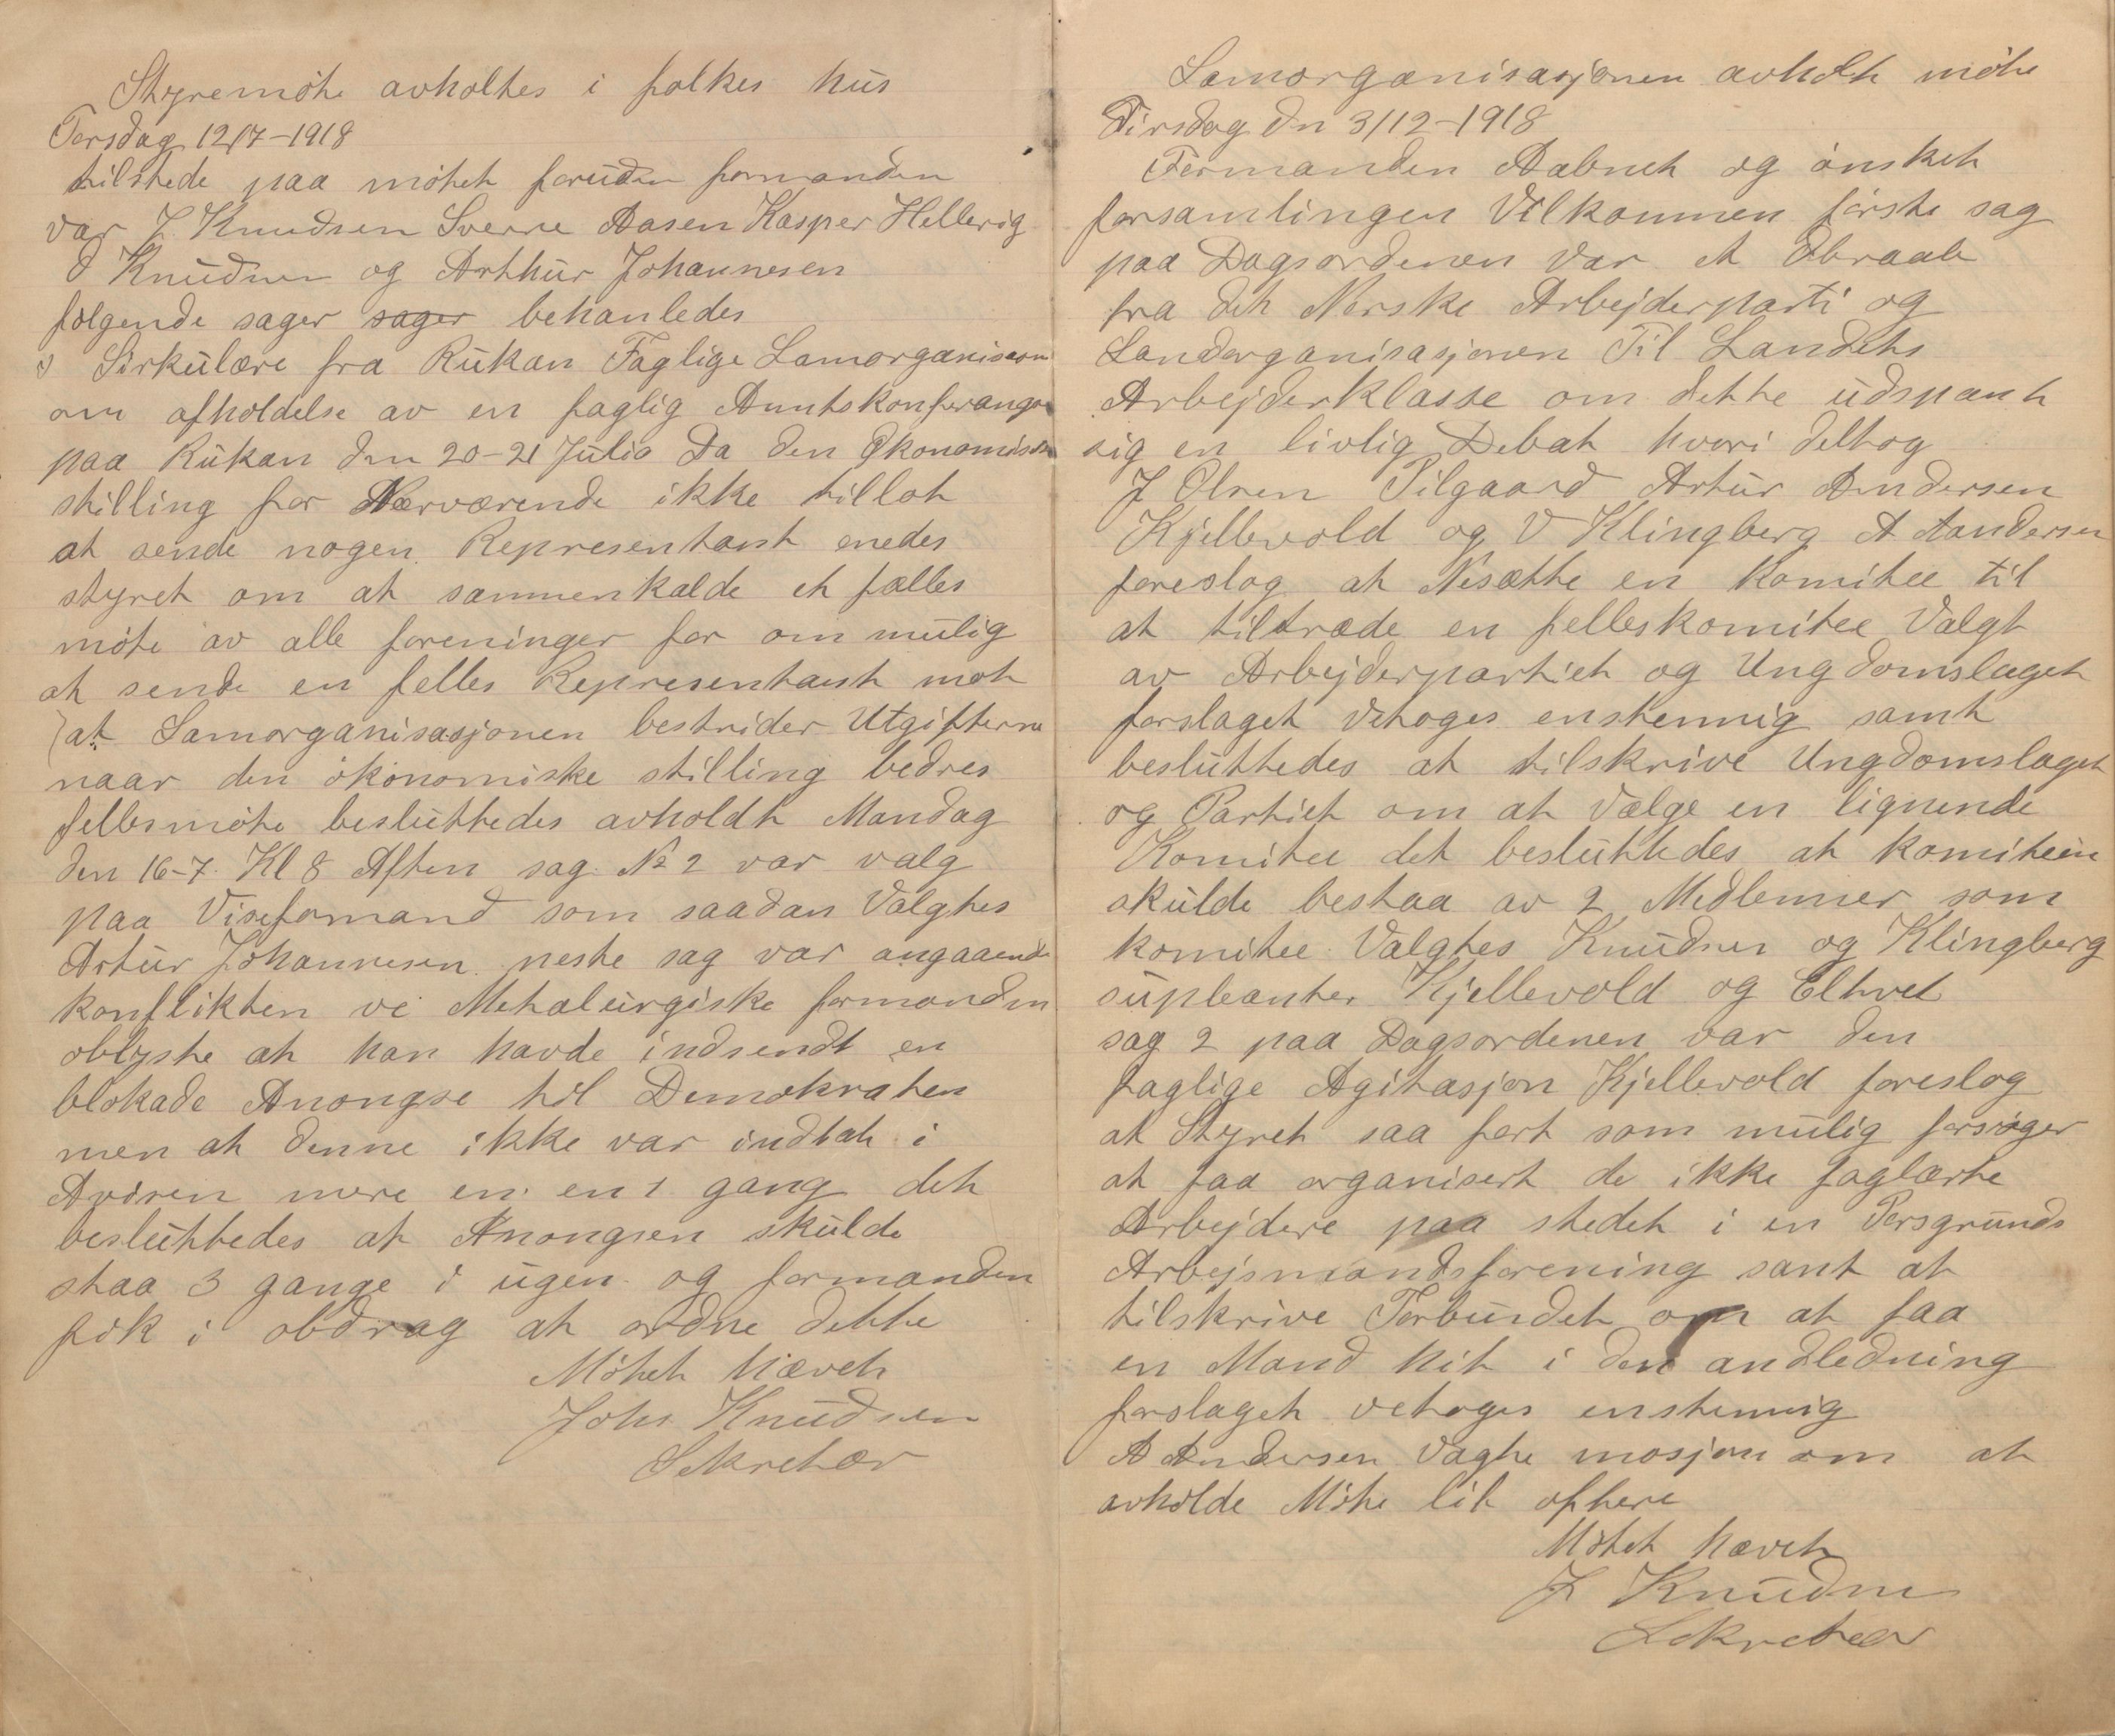 Styremöte avholtes i folkes hus
Torsdag 12/7-1918
tilstede paa mötet foruden formanden
var J. Knudsen Sverre Aasen Kasper Hellerig
O Knudsen og Arthur Johannesen
følgende sager sager behanledes
Sirkulære fra Rukan Faglige Samorganisasion
om afholdelse av en faglig Amtskonferangse
paa Rukan den 20-21 Julio Da den Økonomiske
stilling for Nærværende ikke tillot
at sende nogen Representant enedes
styret om at sammenkalde et falles
möte av alle foreninger for om mulig
at sende en felles Representant mot
at Samorganisasjonen bestrider Utgifterne
naar den ökonomiske stilling bedres
fellesmöte besluttedes avholdt Mandag
den 16-7. Kl 8 Aften sag No 2 var valg
paa Viseformand som saadan Valgtes
Artur Johannesen neste sag var angaaende
konflikten ve Metalurgiske formanden
oblyste at han havde indsendt en
blokade Anongse til Demokraten
men at denne ikke var indtat i
Avisen mere en en 1 gang det
besluttedes at Anongsen skulde
staa 3 gange i ugen og formanden
fik i obdrag at ordne dette
Mötet hævet
Johs Knudsen
Sekretær
Samorganisasjonen avholt möte
Tirsdag dn 3/12-1918
Formanden Aabnet og önsket
forsamlingen Vilkommen förste sag
paa Dagsordenen var et Obraab
fra det Norske Arbejderparti og
Landsorganisasjonen Til Landets
Arbejderklasse om dette udspant
sig en livlig Debat hvori deltog
J Olsen Pilgaard Artur Andersen
Kjellevold og V Klingberg A Aandersen
foreslog at Nesætte en Komitee til
at tiltræde en felleskomitee Valgt
av Arbejderpartiet og Ungdomslaget
forslaget vetoges enstemmig samt
besluttedes at tilskrive Ungdomslaget
og Partiet om at Vælge en lignende
Komitee det besluttedes at komiteein
skulde bestaa av 2 Medlemmer som
komitee Valgtes Knudsen og Klingberg
supleanter Kjellevold og Eltvet
sag 2 paa Dagsordenen var den
faglige Agitasjon Kjellevold foreslog
at Styret saa fort som mulig forsöger
at faa organisert de ikke faglærte
Arbejdere paa stedet i en Porsgrunds
Arbejsmandsforening samt at
tilskrive Forbundet om at faa
en Mand hit i den andledning
forslaget vetoges enstemmig
A Andersen Vagte mosjon om at
avholde Möte lit oftere
Mötet hævet
J Knudsen
Sekretær